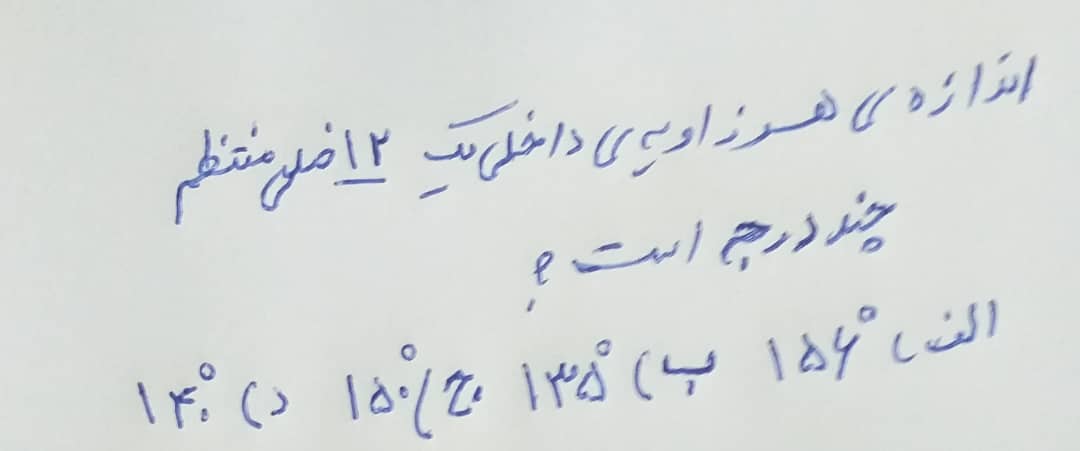 اندازه ی هر زاویه ی داخلی یک ۱۲ ضلعی منتظم
چند درجه است؟
الف) ۱۵۶° ب) ۱۳۵° ج) ۱۵۰° د) ۱۴۰°